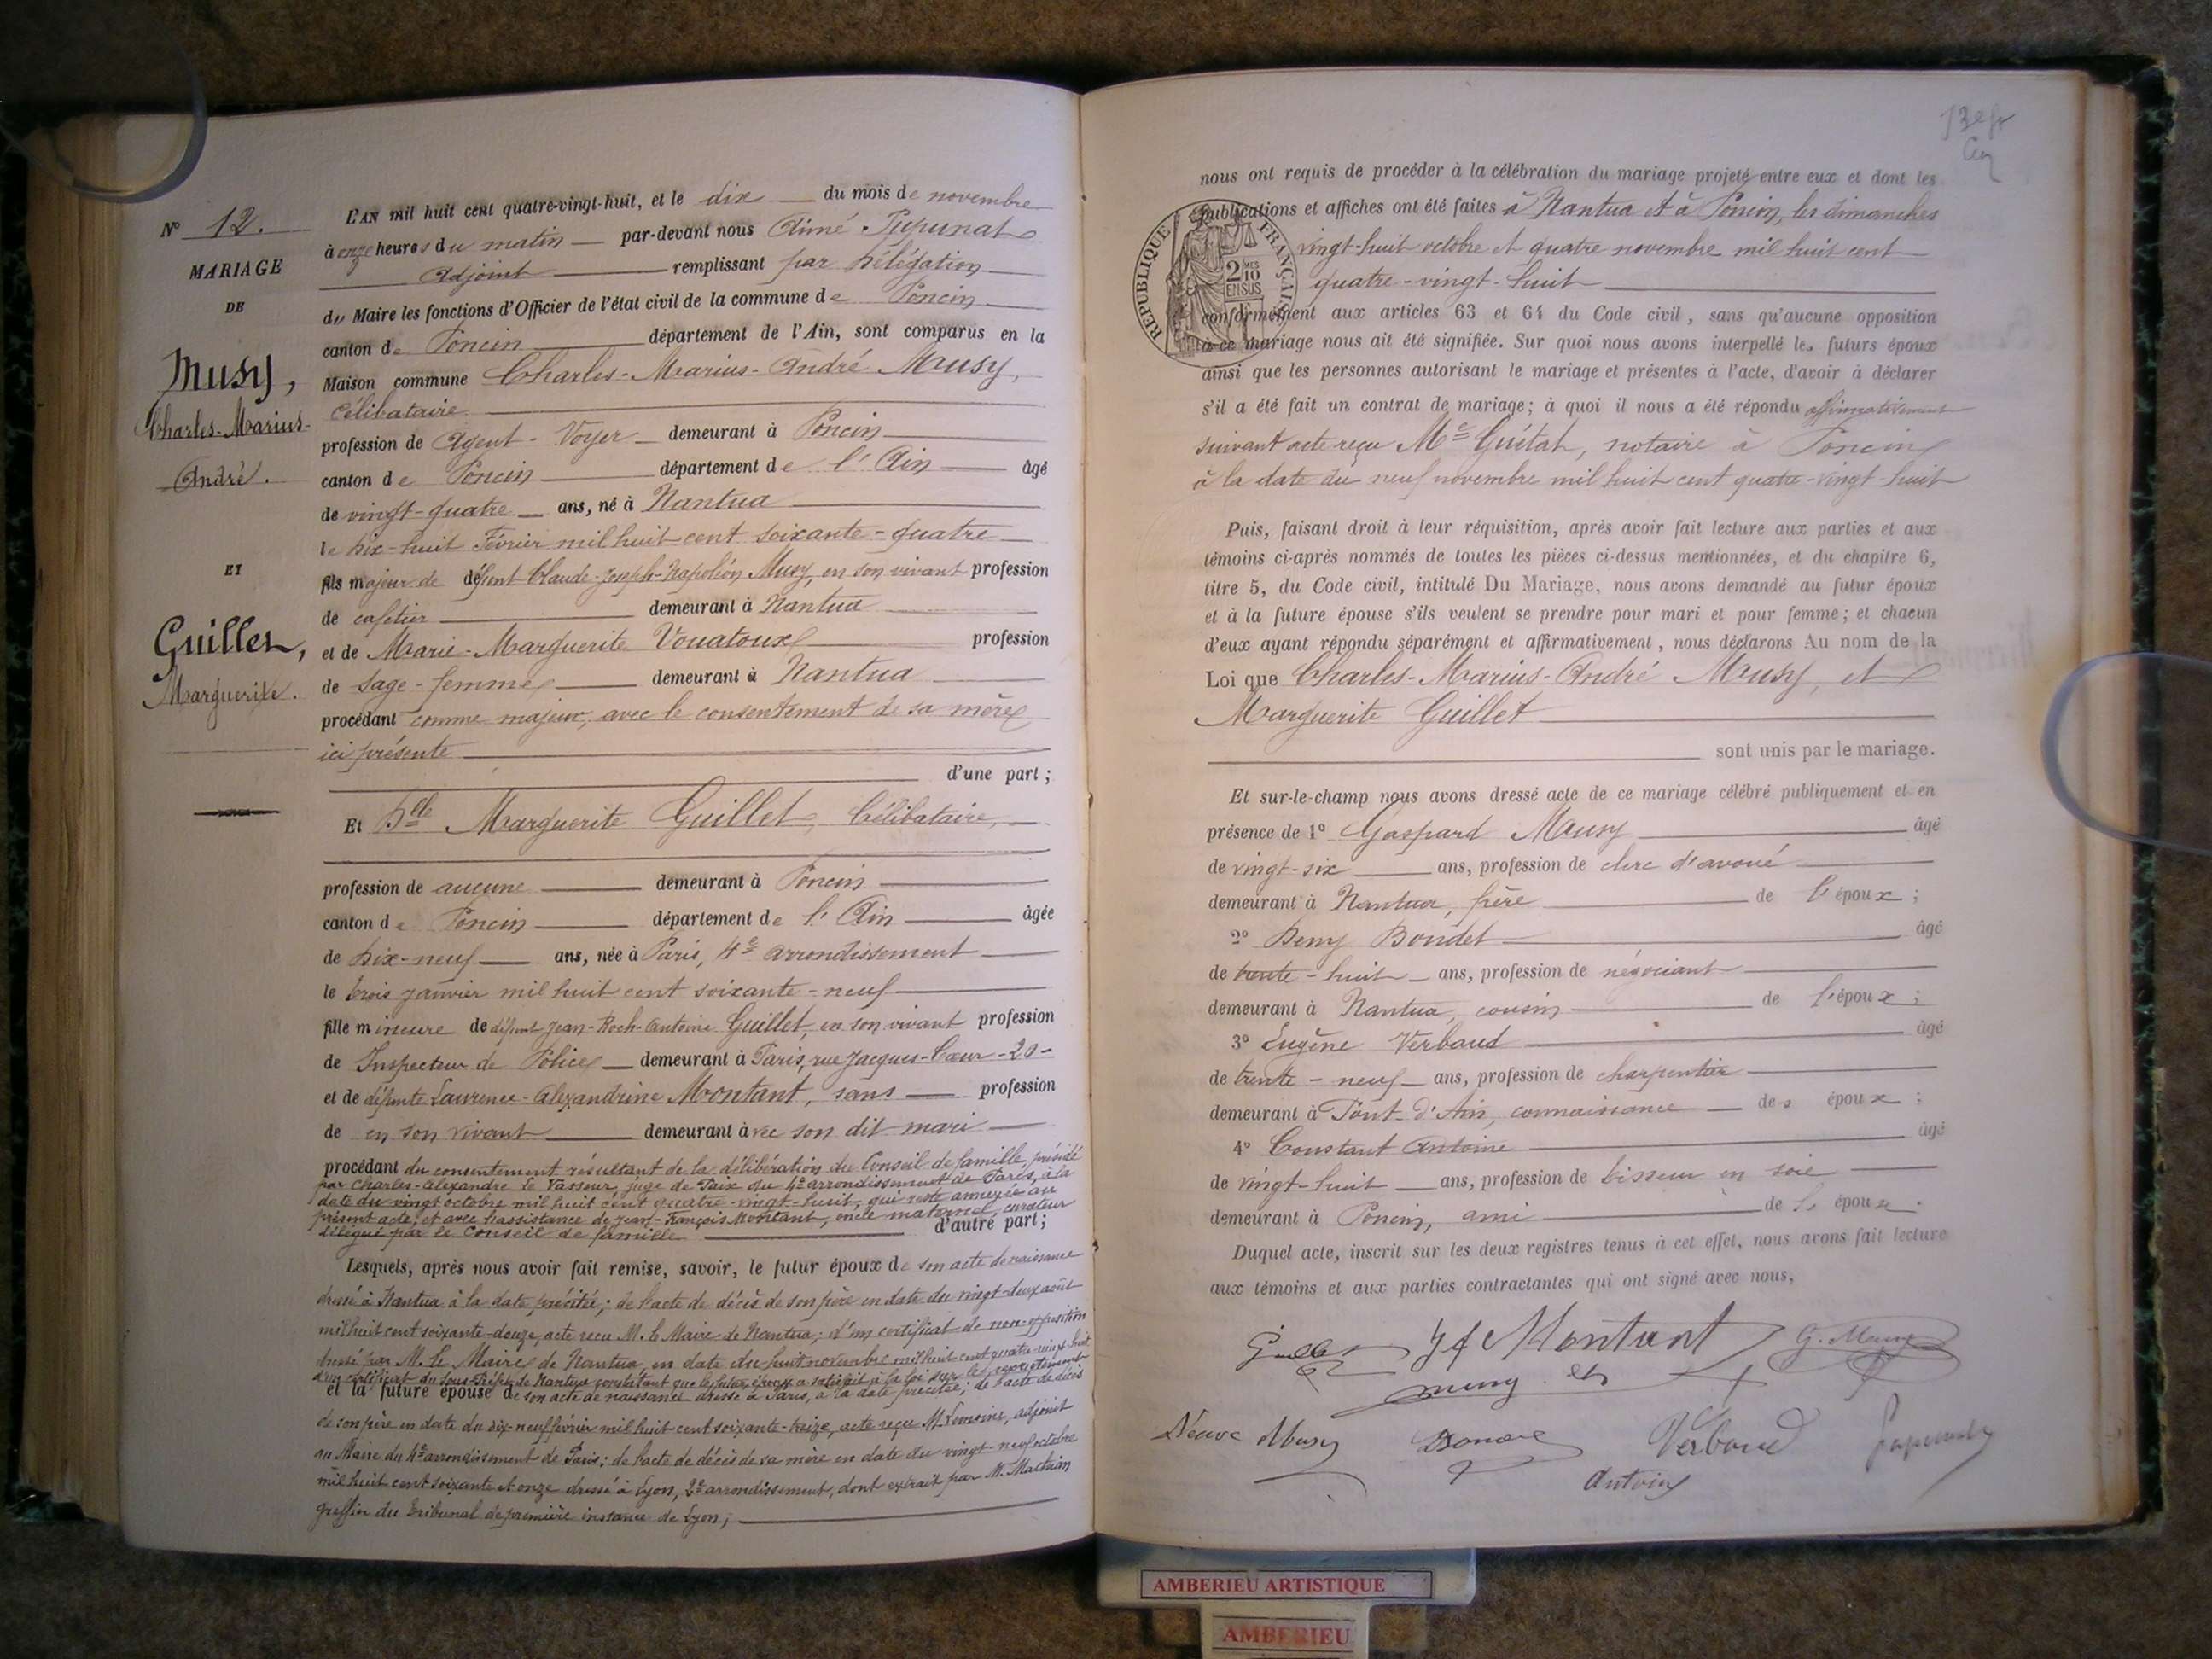 N° 12.
MARIAGE
DE
Musy,
Charles-Marius-
André.
ET
Guillet,
Marguerite.
L'AN mil huit cent quatre-vingt-huit, et le dix du mois de novembre
à onze heures du matin par-devant nous Aimé Pupunat
Adjoint remplissant par Délégation
du Maire les fonctions d'Officier de l'état civil de la commune de Poncin
canton de Poncin département de l'Ain, sont comparus en la
Maison commune Charles-Marius-André Musy,
célibataire
profession de Agent-Voyer demeurant à Poncin
canton de Poncin département de l'Ain âgé
de vingt-quatre ans, né à Nantua
le dix-huit Février mil huit cent soixante-quatre
fils majeur de défunt Claude-Joseph-Napoléon Musy, en son vivant profession
de cafetier demeurant à Nantua
et de Marie-Marguerite Vouatoux profession
de sage-femme demeurant à Nantua
procédant comme majeur, avec le consentement de sa mère
ici présente
d'une part ;
Et Dlle Marguerite Guillet, Célibataire,
profession de aucune demeurant à Poncin
canton de Poncin département de l'Ain âgée
de dix-neuf ans, née à Paris, 4e arrondissement
le trois janvier mil huit cent soixante-neuf
fille mineure de défunt Jean-Roch-Antoine Guillet, en son vivant profession
de Inspecteur de Police demeurant à Paris, rue Jacques-Cœur-20-
et de défunte Laurence-Alexandrine Montant, sans profession
de en son vivant demeurant avec son dit mari
procédant du consentement résultant de la délibération du Conseil de famille, présidé
par Charles-Alexandre Le Vasseur juge de Paix du 4e arrondissement de Paris, à la
date du vingt octobre mil huit cent quatre-vingt-huit, qui reste annexée au
présent acte; et avec l'assistance de Jean-François Montant, oncle maternel, curateur
délégué par le Conseil de famille d'autre part ;
Lesquels, après nous avoir fait remise, savoir, le futur époux de son acte de naissance
dressé à Nantua à la date précitée; de l'acte de décès de son père en date du vingt-deux août
mil huit cent soixante-douze, acte reçu M. le Maire de Nantua; d'un certificat de non-opposition
dressé par M. le Maire de Nantua, en date du huit novembre mil huit cent quatre-vingt-huit
d'un certificat du Sous-Préfet de Nantua constatant que le futur époux a satisfait à la loi sur le recrutement
et la future épouse de son acte de naissance dressé à Paris, à la date précitée; de l'acte de décès
de son père en date du dix-neuf février mil huit cent soixante-treize, acte reçu M. Lemoine, adjoint
au Maire du 4e arrondissement de Paris; de l'acte de décès de sa mère en date du vingt-neuf octobre
mil huit cent soixante et onze dressé à Lyon, 2e arrondissement, dont extrait par M.
greffier du tribunal de première instance de Lyon;
nous ont requis de procéder à la célébration du mariage projeté entre eux et dont les
publications et affiches ont été faites à Nantua et à Poncin, les dimanches
vingt-huit octobre et quatre novembre mil huit cent
quatre-vingt-huit
REPUBLIQUE FRANÇAISE
2/10 MES EN SUS
conformément aux articles 63 et 64 du Code civil, sans qu'aucune opposition
à ce mariage nous ait été signifiée. Sur quoi nous avons interpellé les futurs époux
ainsi que les personnes autorisant le mariage et présentes à l'acte, d'avoir à déclarer
s'il a été fait un contrat de mariage; à quoi il nous a été répondu affirmativement
suivant acte reçu Me Guétat, notaire à Poncin
à la date du neuf novembre mil huit cent quatre-vingt-huit
Puis, faisant droit à leur réquisition, après avoir fait lecture aux parties et aux
témoins ci-après nommés de toutes les pièces ci-dessus mentionnées, et du chapitre 6,
titre 5, du Code civil, intitulé Du Mariage, nous avons demandé au futur époux
et à la future épouse s'ils veulent se prendre pour mari et pour femme; et chacun
d'eux ayant répondu séparément et affirmativement, nous déclarons Au nom de la
Loi que Charles-Marius-André Musy, et
Marguerite Guillet
sont unis par le mariage.
Et sur-le-champ nous avons dressé acte de ce mariage célébré publiquement et en
présence de 1° Gaspard Musy âgé
de vingt-six ans, profession de clerc d'avoué
demeurant à Nantua, frère de l'époux ;
2° Demy Bondet âgé
de trente-huit ans, profession de négociant
demeurant à Nantua, cousin de l'époux ;
3° Eugène Verbaud âgé
de trente-neuf ans, profession de charpentier
demeurant à Pont-d'Ain, connaissance des époux ;
4° Constant Antoine âgé
de vingt-huit ans, profession de tisseur en soie
demeurant à Poncin, ami de l'époux.
Duquel acte, inscrit sur les deux registres tenus à cet effet, nous avons fait lecture
aux témoins et aux parties contractantes qui ont signé avec nous.
Guillet J f Montant G. Musy
Musy
Veuve Musy Verbaud Pupunat
Antoine
AMBERIEU ARTISTIQUE
AMBERIEU